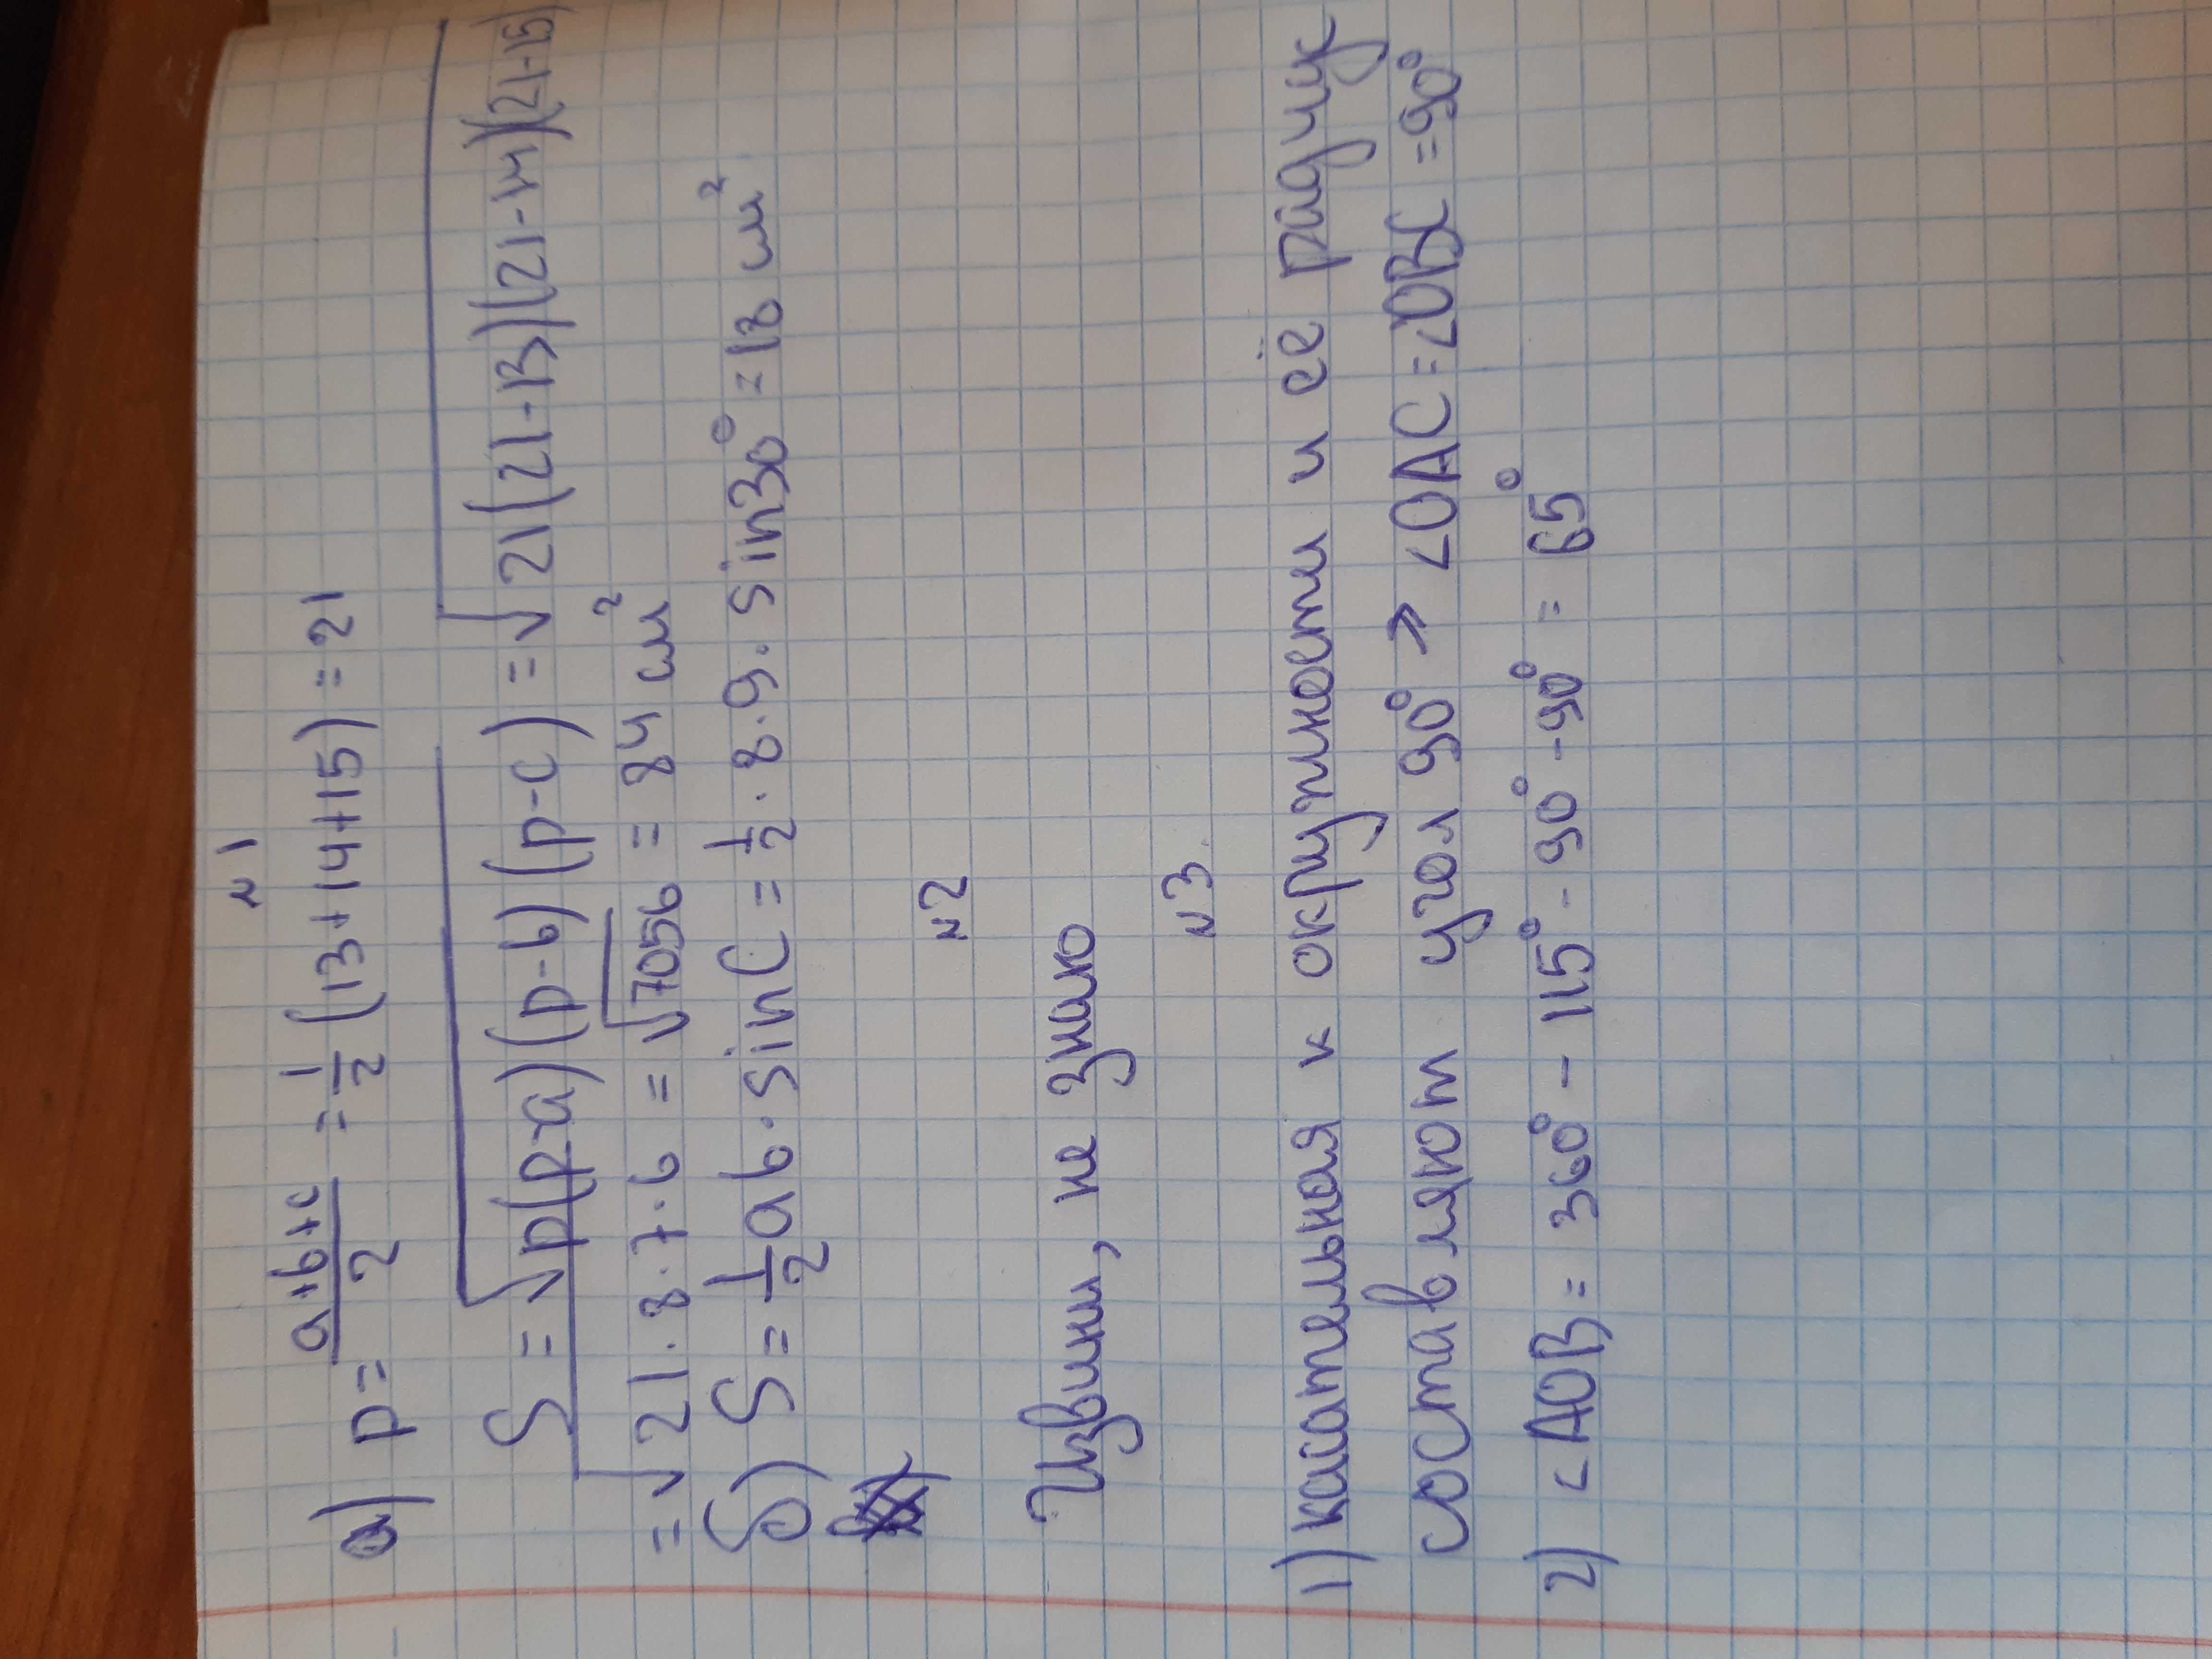 №1
а) p = a+b+c/2 = 1/2 (13+14+15) = 21
S = √p(p-a)(p-b)(p-c) = √21(21-13)(21-14)(21-15)
= √21·8·7·6 = √7056 = 84 см²
б) S = 1/2 ab·sinC = 1/2·8·9·sin30° = 18 см²
№2
Извини, не знаю
№3
1) касательная к окружности и её радиус
составляют угол 90° => <OAC = <OBC = 90°
2) <AOB = 360° - 115° - 90° - 90° = 65°